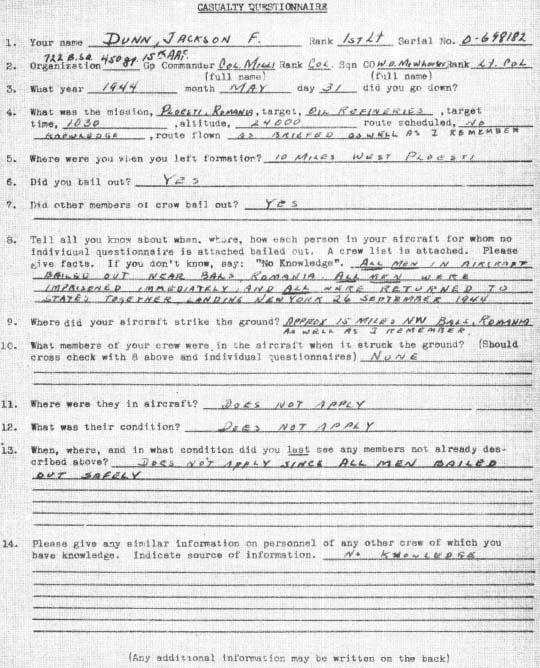 CASUALTY QUESTIONNAIRE
1. Your name DUNN, JACKSON F. Rank 1ST LT Serial No. O-698182
722 B.SQ. 450 GP. 15TH AAF.
2. Organization Gp Commander COL. MILLS Rank COL. Sqn CO W.D. Rank LT. COL
(full name) (full name)
3. What year 1944 month MAY day 31 did you go down?
4. What was the mission, PLOESTI, ROMANIA, target, OIL REFINERIES, target
time, 1030, altitude, 24000 route scheduled, NO
KNOWLEDGE, route flown AS BRIEFED AS WELL AS I REMEMBER
5. Where were you when you left formation? 10 MILES WEST PLOESTI
6. Did you bail out? YES
7. Did other members of crew bail out? YES
8. Tell all you know about when, where, how each person in your aircraft for whom no
individual questionnaire is attached bailed out. A crew list is attached. Please
give facts. If you don't know, say: "No Knowledge". ALL MEN IN AIRCRAFT
BAILED OUT NEAR BALS ROMANIA. ALL MEN WERE
IMPRISONED IMMEDIATELY, AND ALL WERE RETURNED TO
STATES TOGETHER, LANDING NEW YORK 26 SEPTEMBER 1944
9. Where did your aircraft strike the ground? APPROX 15 MILES NW BALL, ROMANIA
AS WELL AS I REMEMBER.
10. What members of your crew were in the aircraft when it struck the ground? (Should
cross check with 8 above and individual questionnaires) NONE
11. Where were they in aircraft? DOES NOT APPLY
12. What was their condition? DOES NOT APPLY
13. When, where, and in what condition did you last see any members not already des-
cribed above? DOES NOT APPLY SINCE ALL MEN BAILED
OUT SAFELY
14. Please give any similar information on personnel of any other crew of which you
have knowledge. Indicate source of information. NO KNOWLEDGE
(Any additional information may be written on the back)